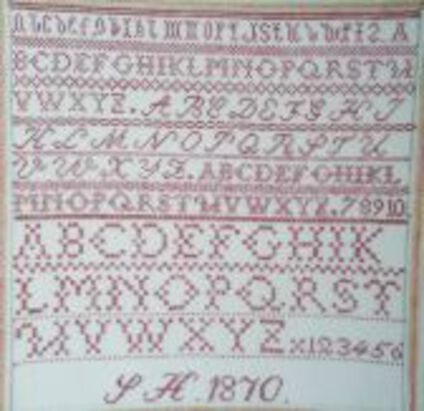 A
BCDEFGHIKLMNOPQRSTU
VWXYZ. ABCDEFGHI
KLMNOPQRSTU
VWXYZ. ABCDEFGHIKL
MNOPQRSTUVWXYZ. 78910
ABCDEFGHIK
LMNOPQRST
UVWXYZ x123456
S H. 1870.